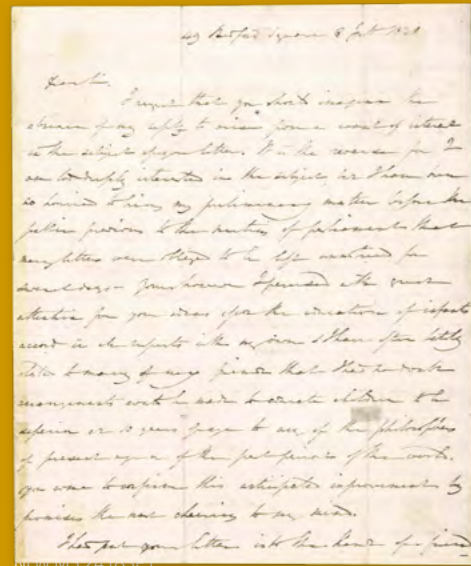 49 Bedford Square 8 1828
Dear Sir,
I regret that you should imagine the
absence of my reply to arise from a want of interest
in the subject of your letter. It is the reverse for I
am too deeply interested in the subject, but I have been
so hurried to bring my preliminary matters before the
public previous to the meeting of parliament that
many letters were obliged to be left unanswered for
several days — Yours however I perused with great
attention for your ideas upon the education of infants
accord in all respects with my own & I have often lately
stated to many of my friends that I had no doubt
arrangements could be made to educate children to be
superior at 10 years of age to any of the philosophers
of present age or of the past periods of the world.
You seem to confirm this anticipated improvement by
promises the most cheering to my mind.
I had put your letter into the hands of a friend